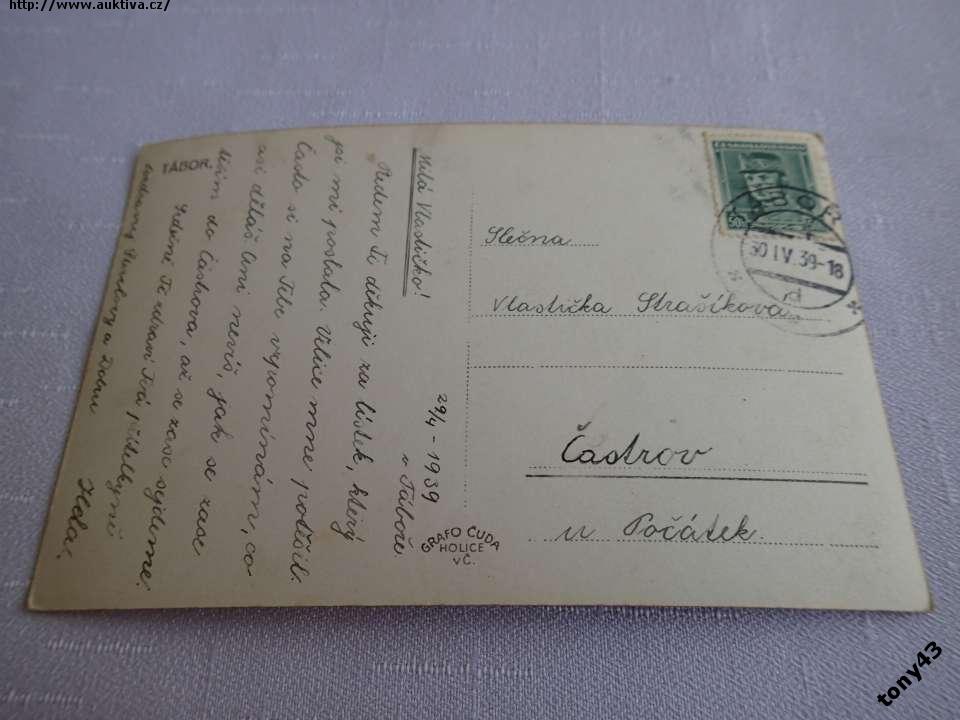 http://www.auktiva.cz/
TÁBOR.
29/4 - 1939
v Táboře
Milá Vlastičko!
Předem Ti děkuji za lístek, který
jsi mi poslala. Velice mne potěšil.
Často si na Tebe vzpomínám, co
asi děláš. Ani nevíš, jak se zase
těším do Častrova, až se zase sejdeme.
Srdečně Tě zdraví Tvá přítelkyně
Hela.
a Zdenu
GRAFO ČUDA
HOLICE
VČ.
ČESKOSLOVENSKO
50
30 IV.39-18
Slečna
Vlastička Strašíková
Častrov
u Počátek.
tony43